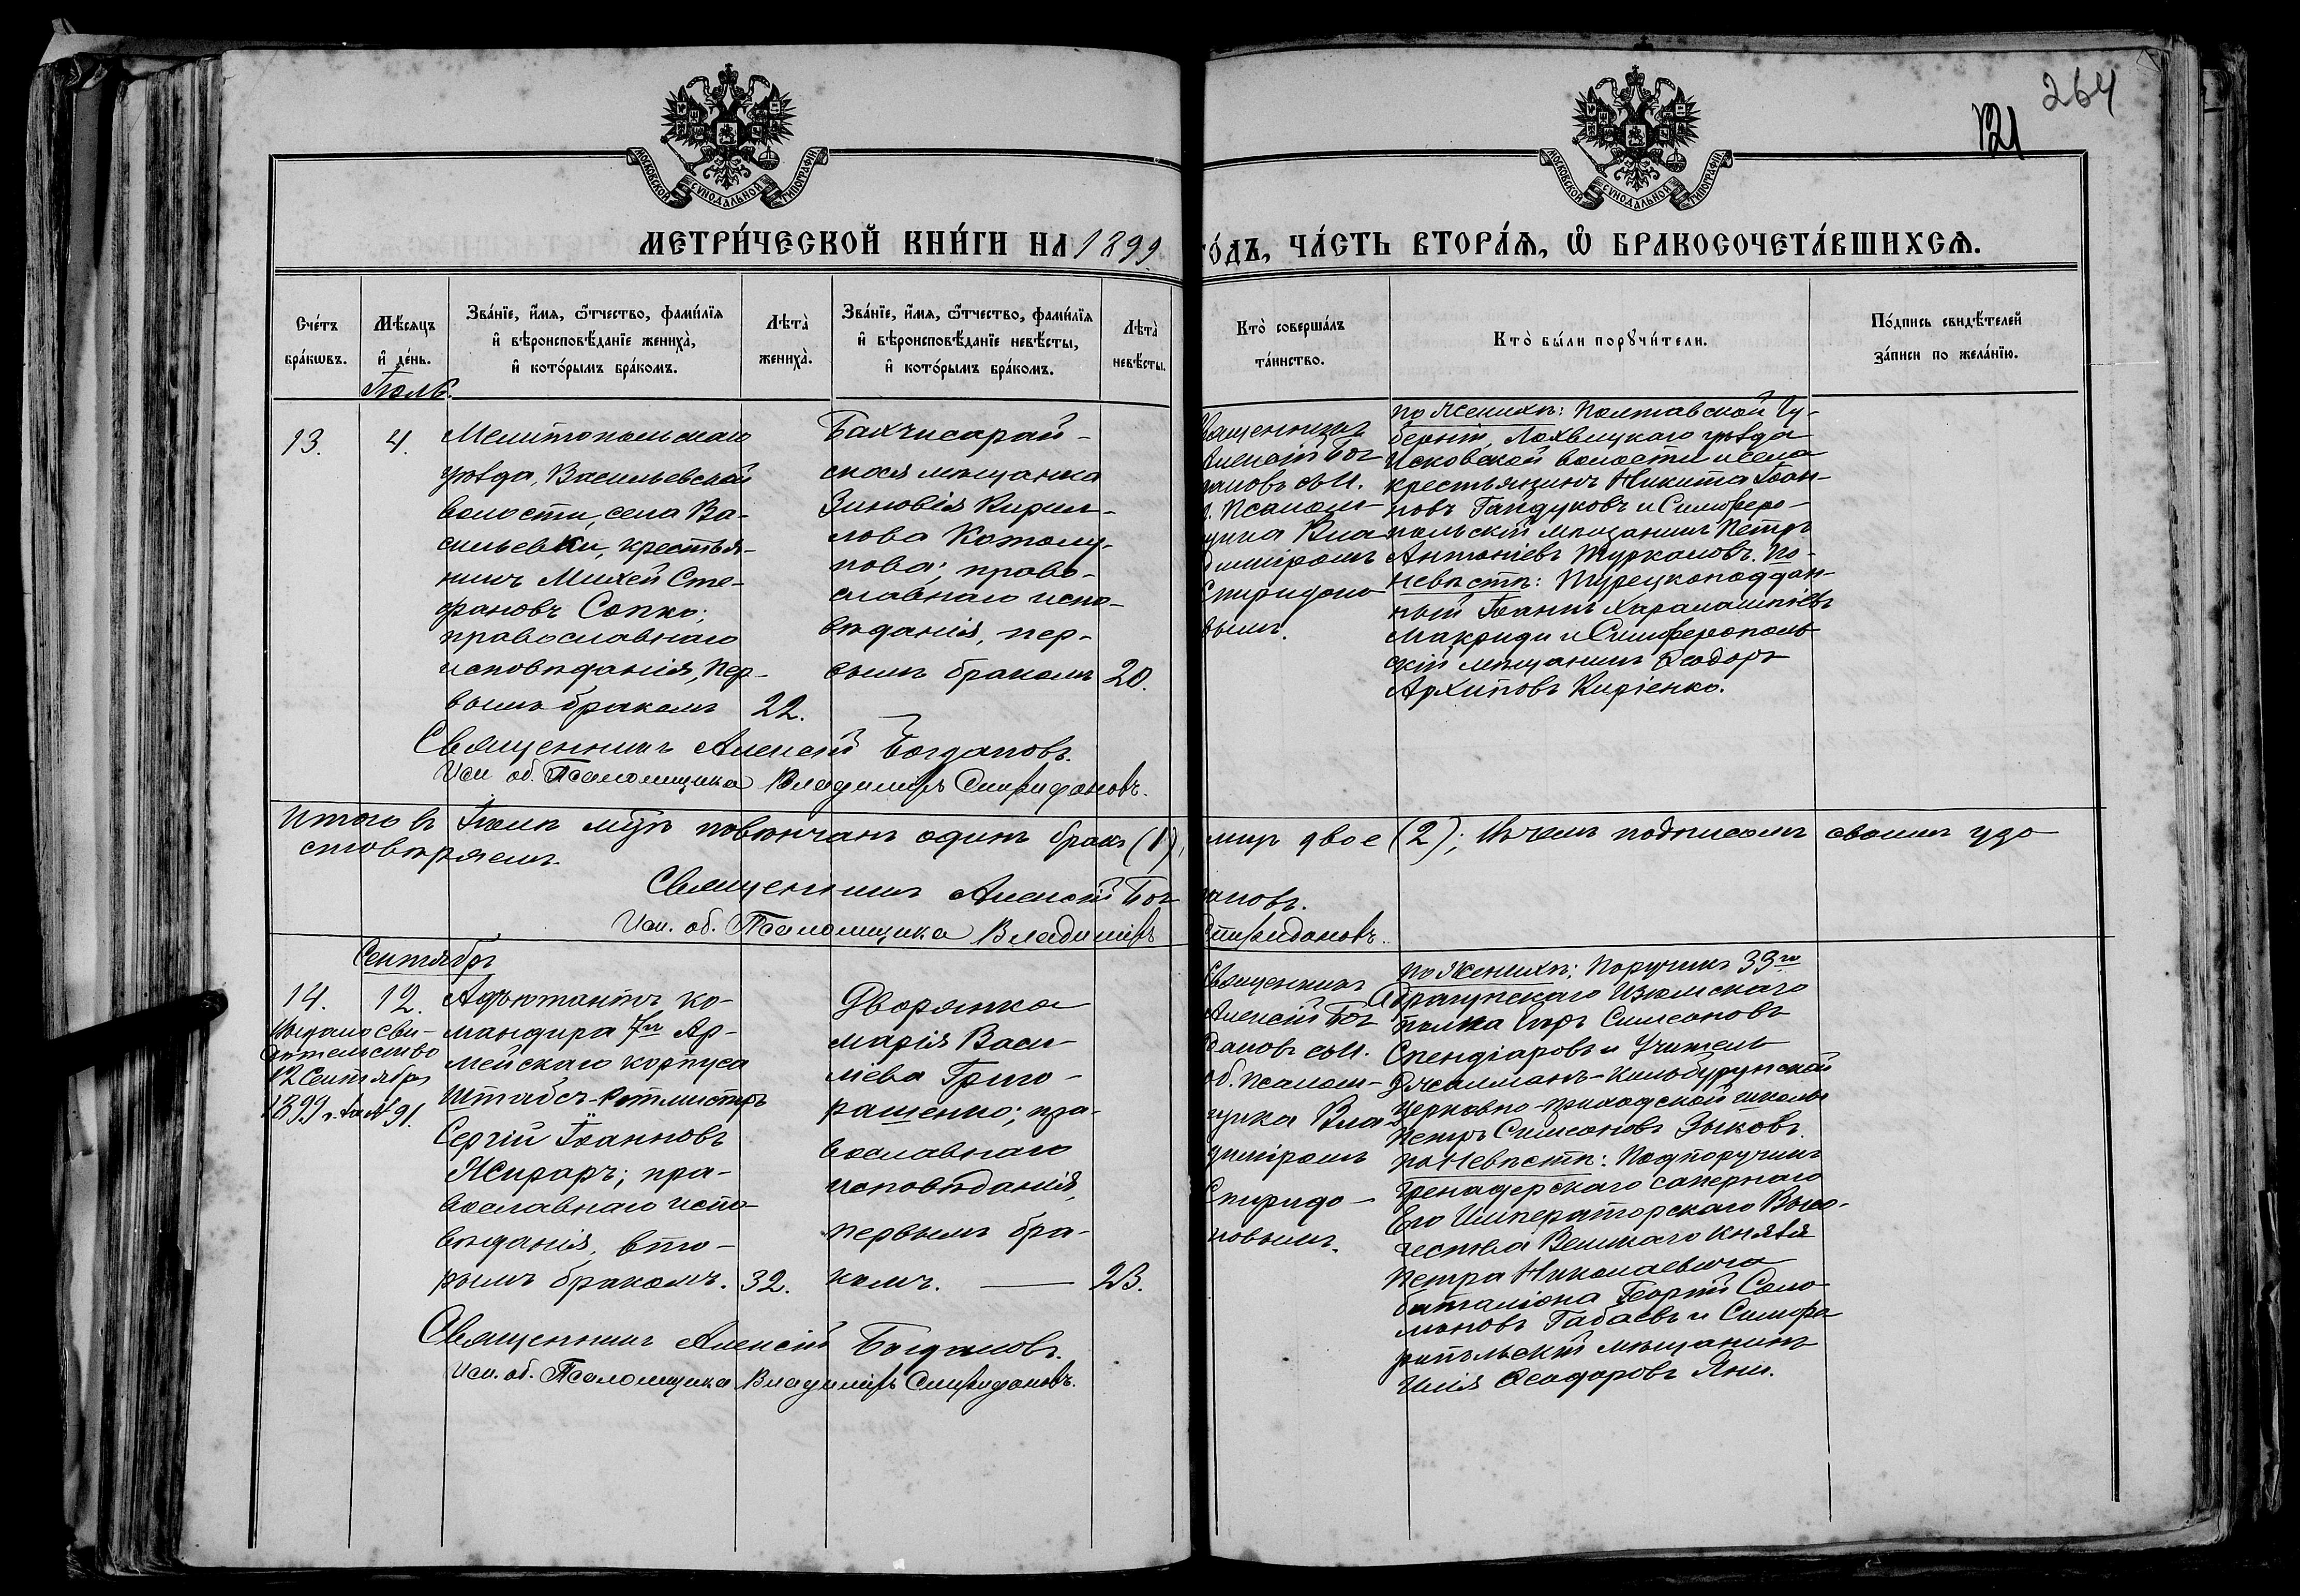 264
121
МОСКОВСКОЙ СѴНОДАЛЬНОЙ ТИПОГРАФІИ
МОСКОВСКОЙ СѴНОДАЛЬНОЙ ТИПОГРАФІИ
МЕТРИ́ЧЕСКОЙ КНИ́ГИ НА 1899
ГО́ДЪ, ЧА́СТЬ ВТОРА́Ѧ, Ѡ҆ БРАКОСОЧЕТА́ВШИХСѦ.
Сче́тъ
бра́кѡвъ.
Мѣ́сяцъ
и҆ де́нь.
Зва́нїе, и҆́мѧ, ѻ҆́тчество, фами́лїѧ
и҆ вѣроисповѣ́данїе жениха̀,
и҆ кото́рымъ бра́комъ.
Лѣта̀
жениха̀.
Зва́нїе, и҆́мѧ, ѻ҆́тчество, фами́лїѧ
и҆ вѣроисповѣ́данїе невѣ́сты,
и҆ кото́рымъ бра́комъ.
Лѣта̀
невѣ́сты.
Кто̀ соверша́лъ
та́инство.
Кто̀ бы́ли порꙋчи́тели.
По́дпись свидѣ́телей
за́писи по жела́нїю.
Іюль.
13.
4.
Мелитопольскаго
уѣзда, Васильевской
волости, села Ва-
сильевки, крестья-
нинъ Михей Сте-
фановъ Сопко;
православнаго
исповѣданія, пер-
вымъ бракомъ
22.
Бахчисарай-
ская мѣщанка
Зиновія Кирил-
лова Котолу-
пова; право-
славнаго испо-
вѣданія, пер-
вымъ бракомъ
20.
Священникъ
Алексій Бог
дановъ съ И.
Псалом-
щика Вла
диміромъ
Спиридоно
вымъ.
по Женихѣ: Полтавской Гу-
берніи, Лохвицкаго уѣзда
Исковской волости и села
крестьянинъ Никита Іоан-
новъ Гайдуковъ и Симферо-
польскій мѣщанинъ Петръ
Антоніевъ Туркаловъ. По-
невѣстѣ: Турецкоподдан-
ный Іоаннъ Харалампіевъ
Макриди и Симферополь
скій мѣщанинъ Ѳеодоръ
Архиповъ Киріенко.
Священникъ Алексій Богдановъ.
Исп. об. Псаломщика Владиміръ Спиридоновъ.
Итого въ Іюлѣ м-цѣ повѣнчанъ одинъ бракъ (1), лицъ двое (2); въ чемъ подписомъ своимъ удо
стовѣряемъ.
Священникъ Алексій Богдановъ.
Исп. об. Псаломщика Владиміръ Спиридоновъ.
Сентябрь
14.
12.
Выдано сви-
дѣтельство
12 Сентября
1899 г. за № 91.
Адъютантъ ко-
мандира 7го Ар-
мейскаго корпуса
Штабсъ-Ротмистръ
Сергій Іоанновъ
Жираръ; пра-
вославнаго испо-
вѣданія, вто-
рымъ бракомъ.
32.
Дворянка
Марія Васи-
ліева Григо-
рашенко; пра-
вославнаго
исповѣданія,
первымъ бра-
комъ.
23.
Священникъ
Алексій Бог
дановъ съ И.
об. Псалом-
щика Вла-
диміромъ
Спиридо-
новымъ.
по Женихѣ: Поручикъ 33го
Драгунскаго Изюмскаго
полка Егоръ Симеоновъ
Спендіаровъ и Учитель
Джалманъ-Кильбурунской
церковно-приходской школы
Петръ Симеоновъ Зыковъ.
по Невѣстѣ: Подпоручикъ
Гренадерскаго сапернаго
Его Императорскаго Высо-
чества Великаго Князя
Петра Николаевича
баталіона Георгій Соло
моновъ Габаевъ и Симфе
ропольскій мѣщанинъ
Илія Ѳеодоровъ Яни.
Священникъ Алексій Богдановъ.
Исп. об. Псаломщика Владиміръ Спиридоновъ.